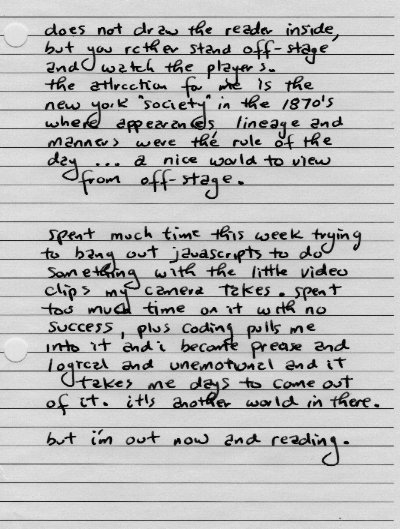 does not draw the reader inside,
but you rather stand off-stage
and watch the players.
the attraction for me is the
new york "society" in the 1870's
where appearances, lineage and
manners were the rule of the
day ... a nice world to view
from off-stage.
spent much time this week trying
to bang out javascripts to do
something with the little video
clips my camera takes. spent
too much time on it with no
success, plus coding pulls me
into it and i become precise and
logical and unemotional and it
takes me days to come out
of it. it's another world in there.
but i'm out now and reading.